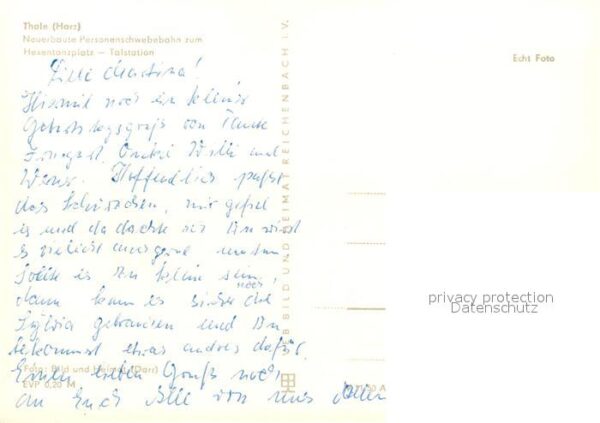 Thale (Harz)
Neuerbaute Personenschwebebahn zum
Hexentanzplatz — Talstation
Echt Foto
Liebe Martina!
Hiermit noch ein kleiner
Geburtstagsgruß von Tante
Irmgard, Onkel Willi und
Hoffentlich paßt
das Schürzchen, mir gefiel
es und da dachte ich Du wirst
es vielleicht auch gerne
sollte es zu klein sein,
dann kann es sicher noch die
Sylvia gebrauchen und Du
bekommst etwas andres dafür.
Einen lieben Gruß noch
an Euch Alle von uns Allen
Foto: Bild und Heimat (Darr)
EVP 0,20 M
BILD UND HEIMAT REICHENBACH I. V.
privacy protection
Datenschutz